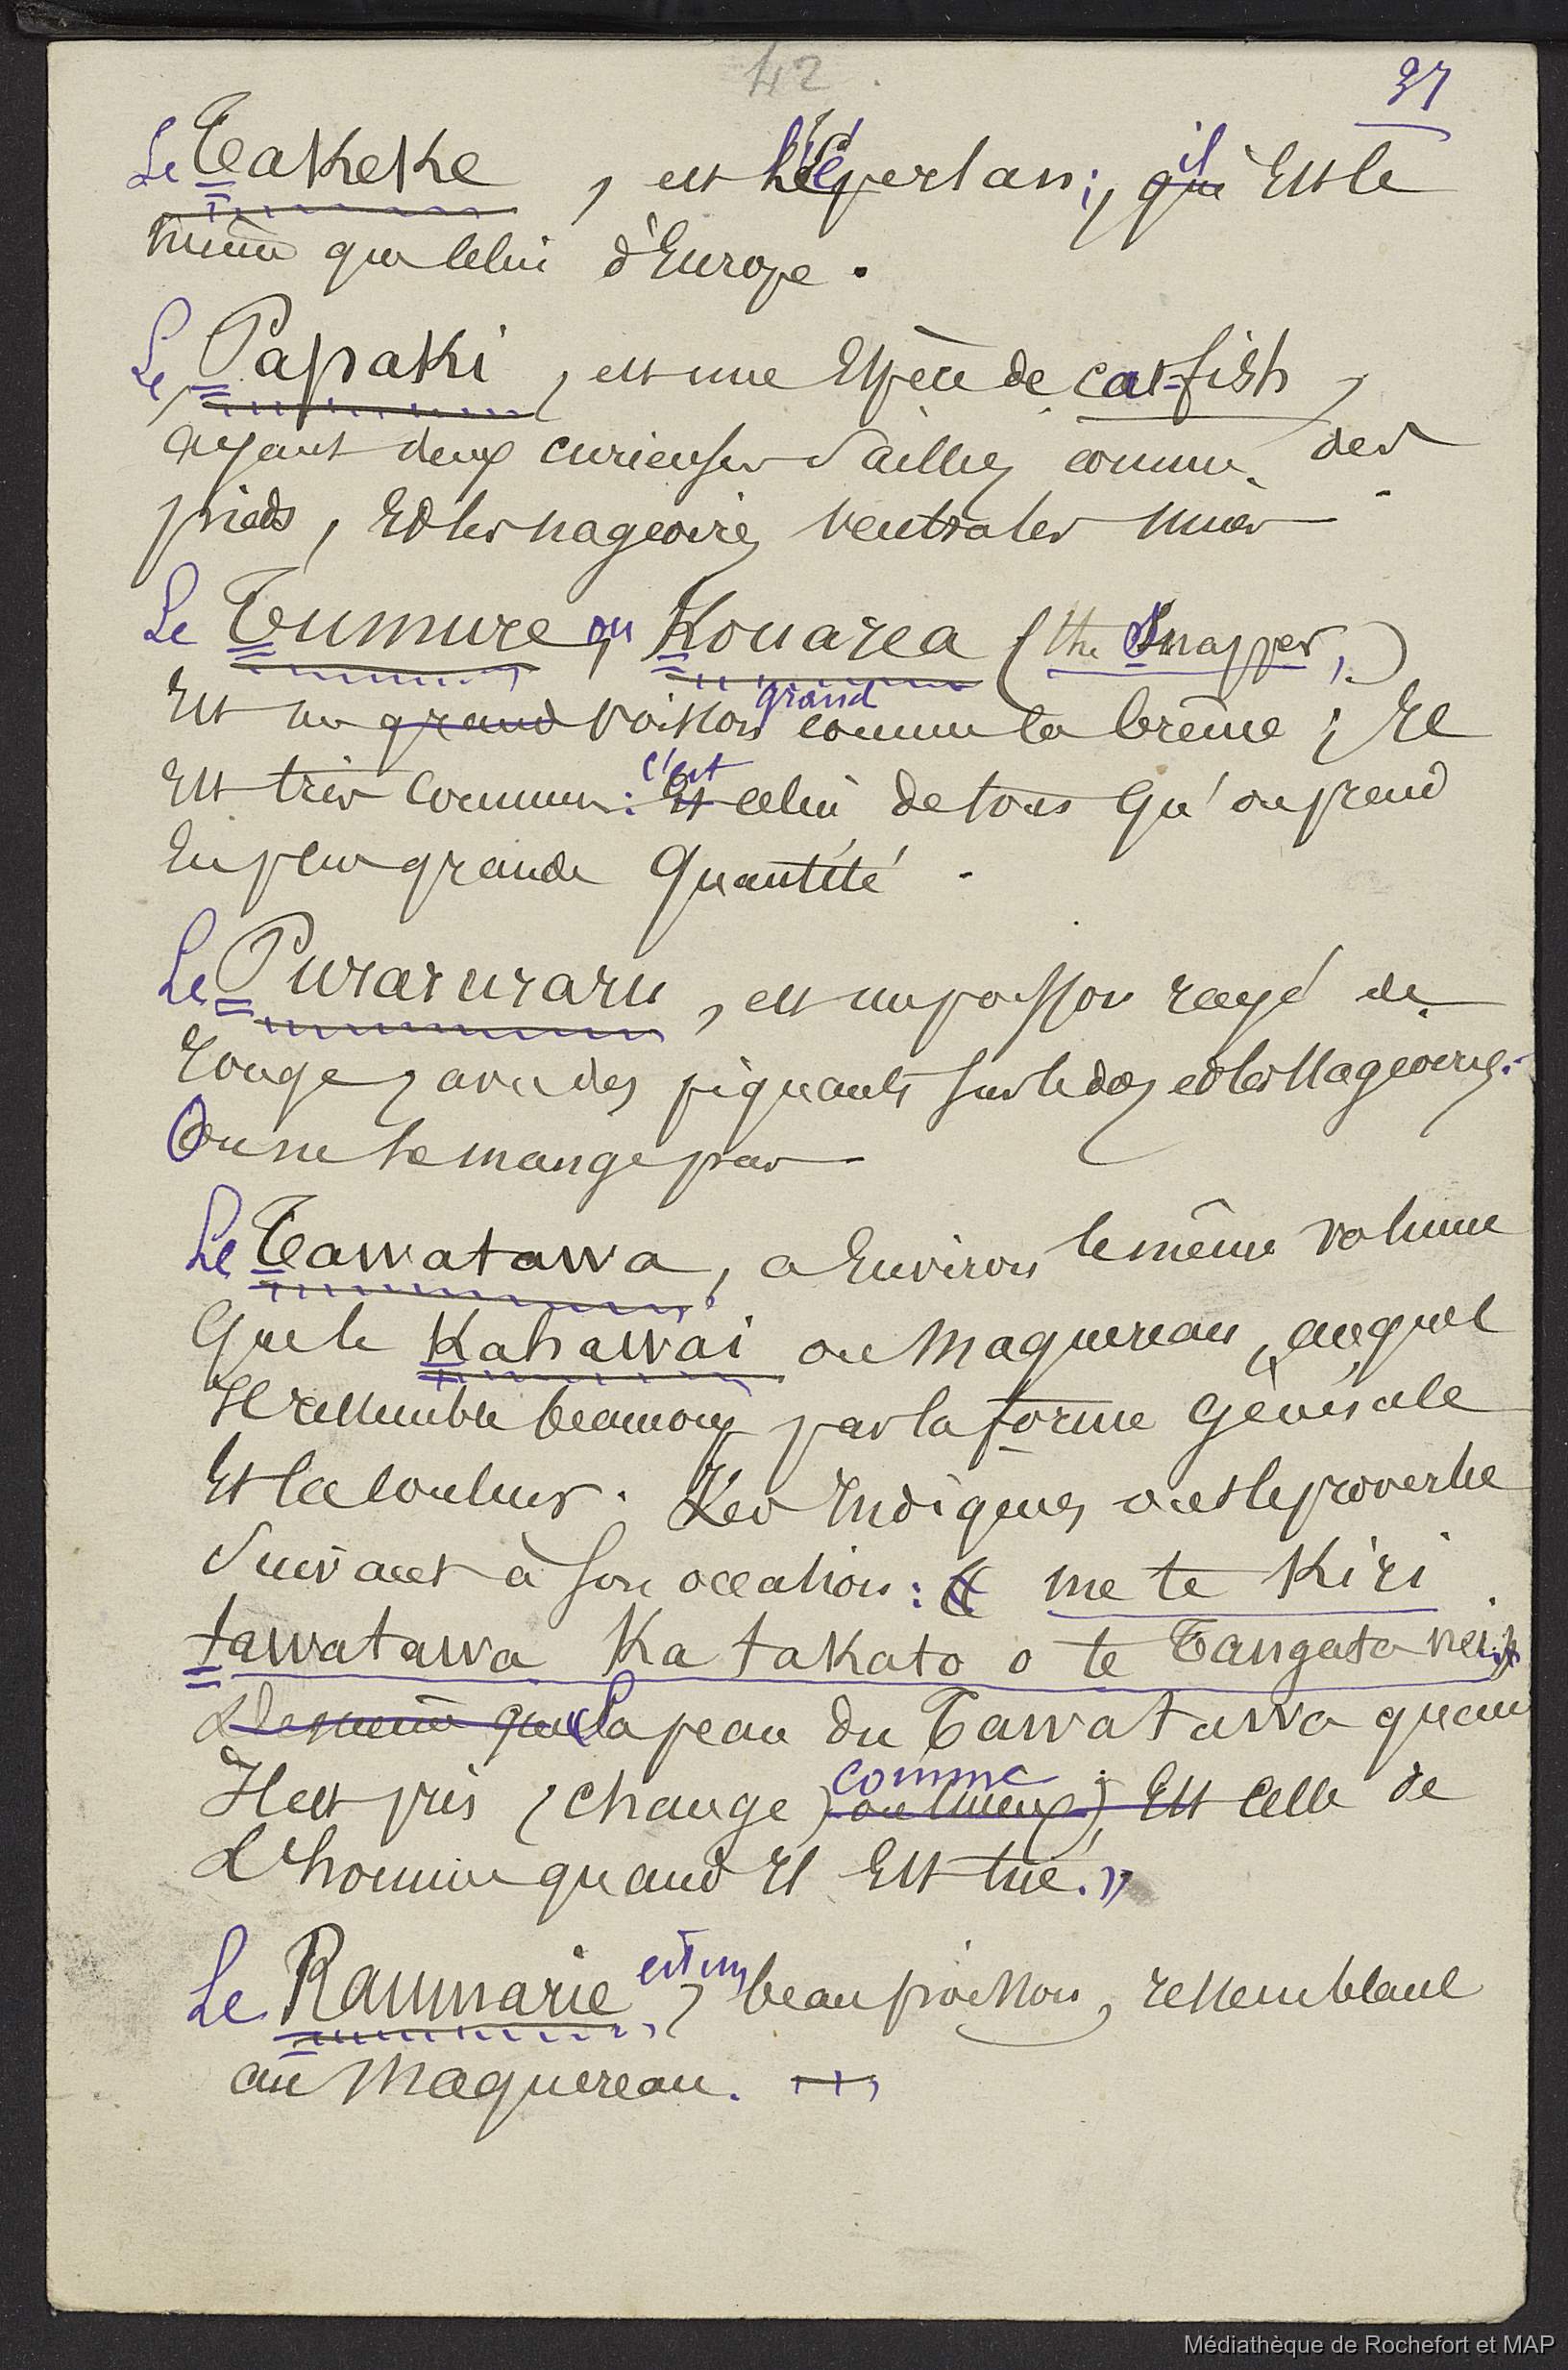 42
37
Le Takeke, est l'éperlan; il est le
même que celui d'Europe.
Le Papaki, est une espèce de cat-fish,
ayant deux curieuses saillies comme des
pieds, et les nageoires ventrales unies
Le Tumure, ou Kouarea (the Snapper,)
Est un poisson grand comme la brême; Il
Est très commun: c'est celui de tous qu'on prend
En plus grande quantité.
Le Puraruraru, est un poisson rayé de
rouge, avec des piquants sur le dos et les nageoires.
On ne le mange pas
Le Tawatawa, a environ le même volume
que le Kahawai ou maquereau, auquel
Il ressemble beaucoup par la forme générale
Et la couleur. Les Indigènes ont le proverbe
suivant à son occasion: « me te Kiri
tawatawa Ka takato o te Tangata nei
La peau du Tawatawa quand
Il est pris, change, comme celle de
L'homme quand Il Est tué.»
Le Raumarie est un beau poisson, ressemblant
au maquereau.
Médiathèque de Rochefort et MAP